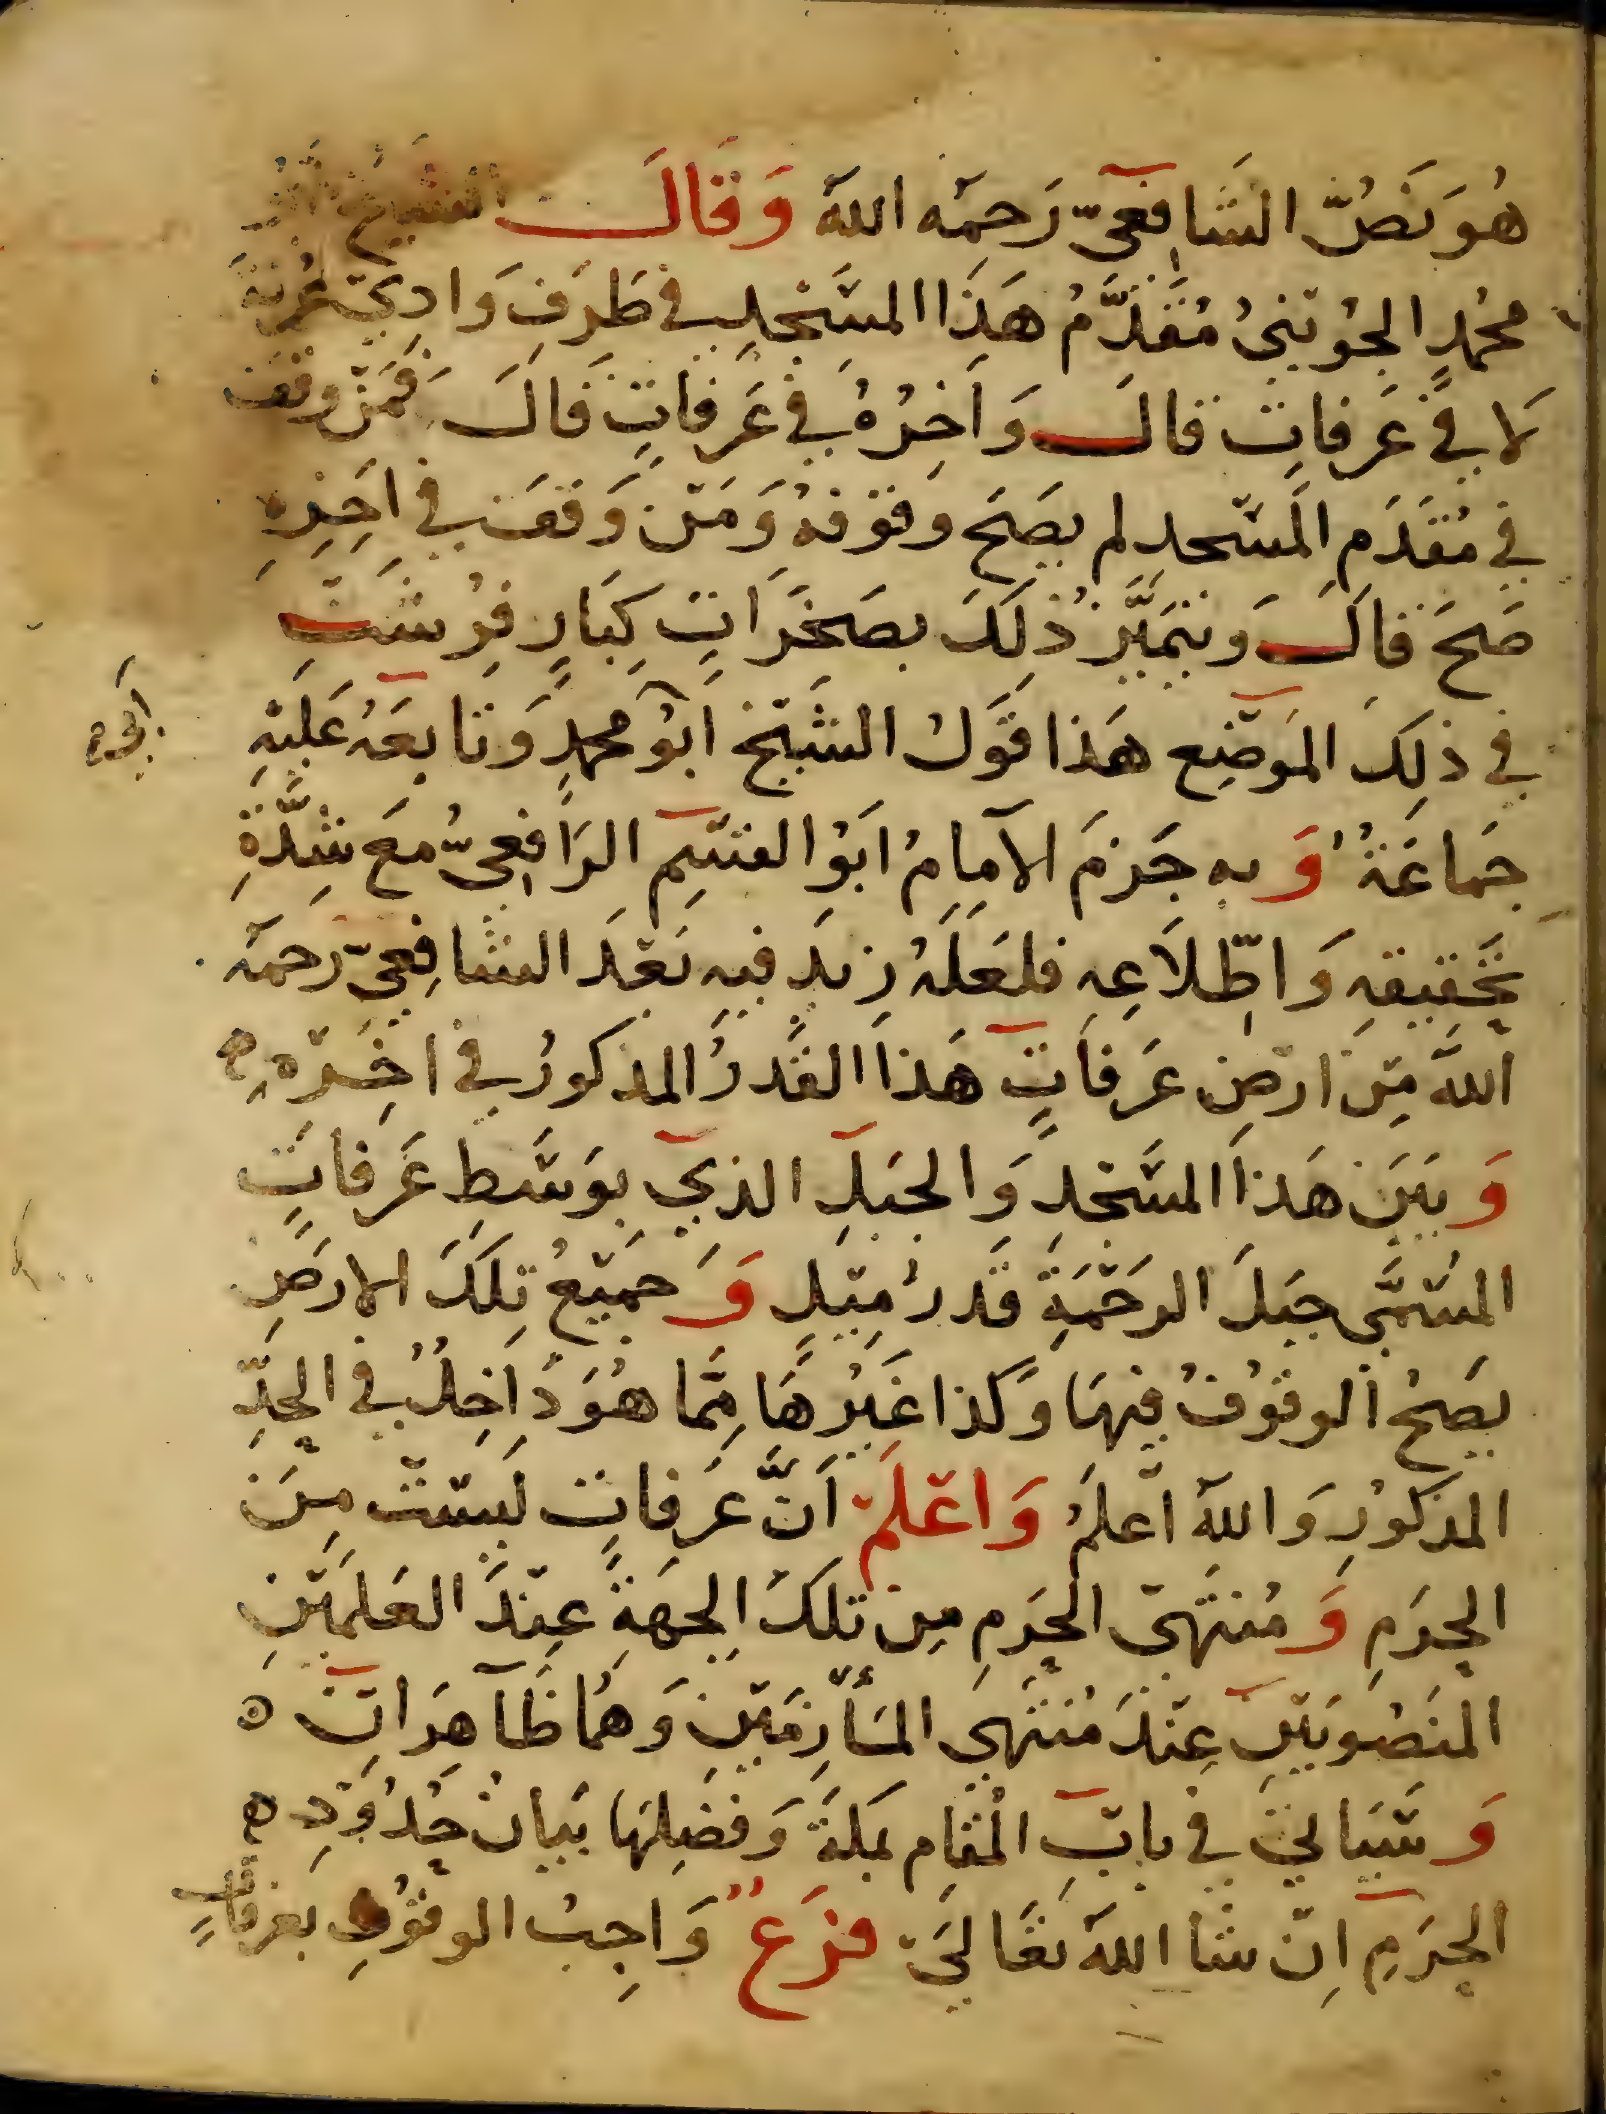 هُوَ نَصُّ الشَافِعيّ رَحمَه اللهَ وَقَالَ الشيخ
محُمدٍ الجُوَيْنيُ مُقَدَّمُ هَذَا المسْجِدِ في طَرَفِ وَادِيْ عُرَنَةَ
لَا في عَرفاتٍ قالَ وَآخِرُهُ في عَرفاتٍ قَالَ فَمَنْ وقف
في مُقدَمِ المسْجدِ لم يصَحَ وقوْفهُ وَمَنْ وَقَفَ في آخِرِهِ
صَحَ قالَ وَيتمَيَّزُ ذلكَ بصَخَرَاتٍ كِبَارٍ فُرِشَتْ
في ذلكَ الموْضِع هَذا قَوْلُ الشَيْخ أبُو محمدٍ وَتابعَهُ عَليْهِ
جَماعَةٌ وَبهِ جَزمَ الإمامُ أبُو القسِم الرَافِعِيُّ معَ شِدَّةِ
تحَقِيقِهِ وَاطِّلَاعِهِ فلعَلَهُ زيدَ فيهِ بَعْدَ الشافِعيّ رَحمَه
اللهَ مِنْ ارْضِ عَرفاتٍ هَذا القَدرُ المذكورُ في اخِرهِ
وَبَينَ هَذا المسْجِدِ وَالجبَلِ الذيْ بوَسْطِ عَرَفاتٍ
المسَمَّى جبَلَ الرَحْمَةِ قَدرُ مِيْلٍ وَجَميْعُ تِلكَ الارَضِ
يصَحُ الوقوْفُ فيهَا وَكذا غَيْرُهَا مِمَّا هُوَ دَاخِلٌ في الحَدِّ
المذكورِ وَاللهُ أعلمُ وَاعْلمْ أَنَّ عَرفاتٍ لَيسَتْ مِنَ
الحرَمِ وَمُنتَهَى الحرَمِ مِن تلكَ الجهَةِ عِنْدَ العَلَمَيْنِ
المنصُوبَيْنِ عِنْدَ مُنتَهى المأزِمَيْنِ وَهُمَا ظَاهِرَانِ ه
وَسَيَاتيْ في بابِ المُقامِ بمكةَ وَفضلِهَا بَيانُ حُدُوْدِ
الحرَمِ اِنْ شا اللهُ تعَالىَ فرَعٌ وَاجِبُ الوقُوفِ بعَرفاتٍ